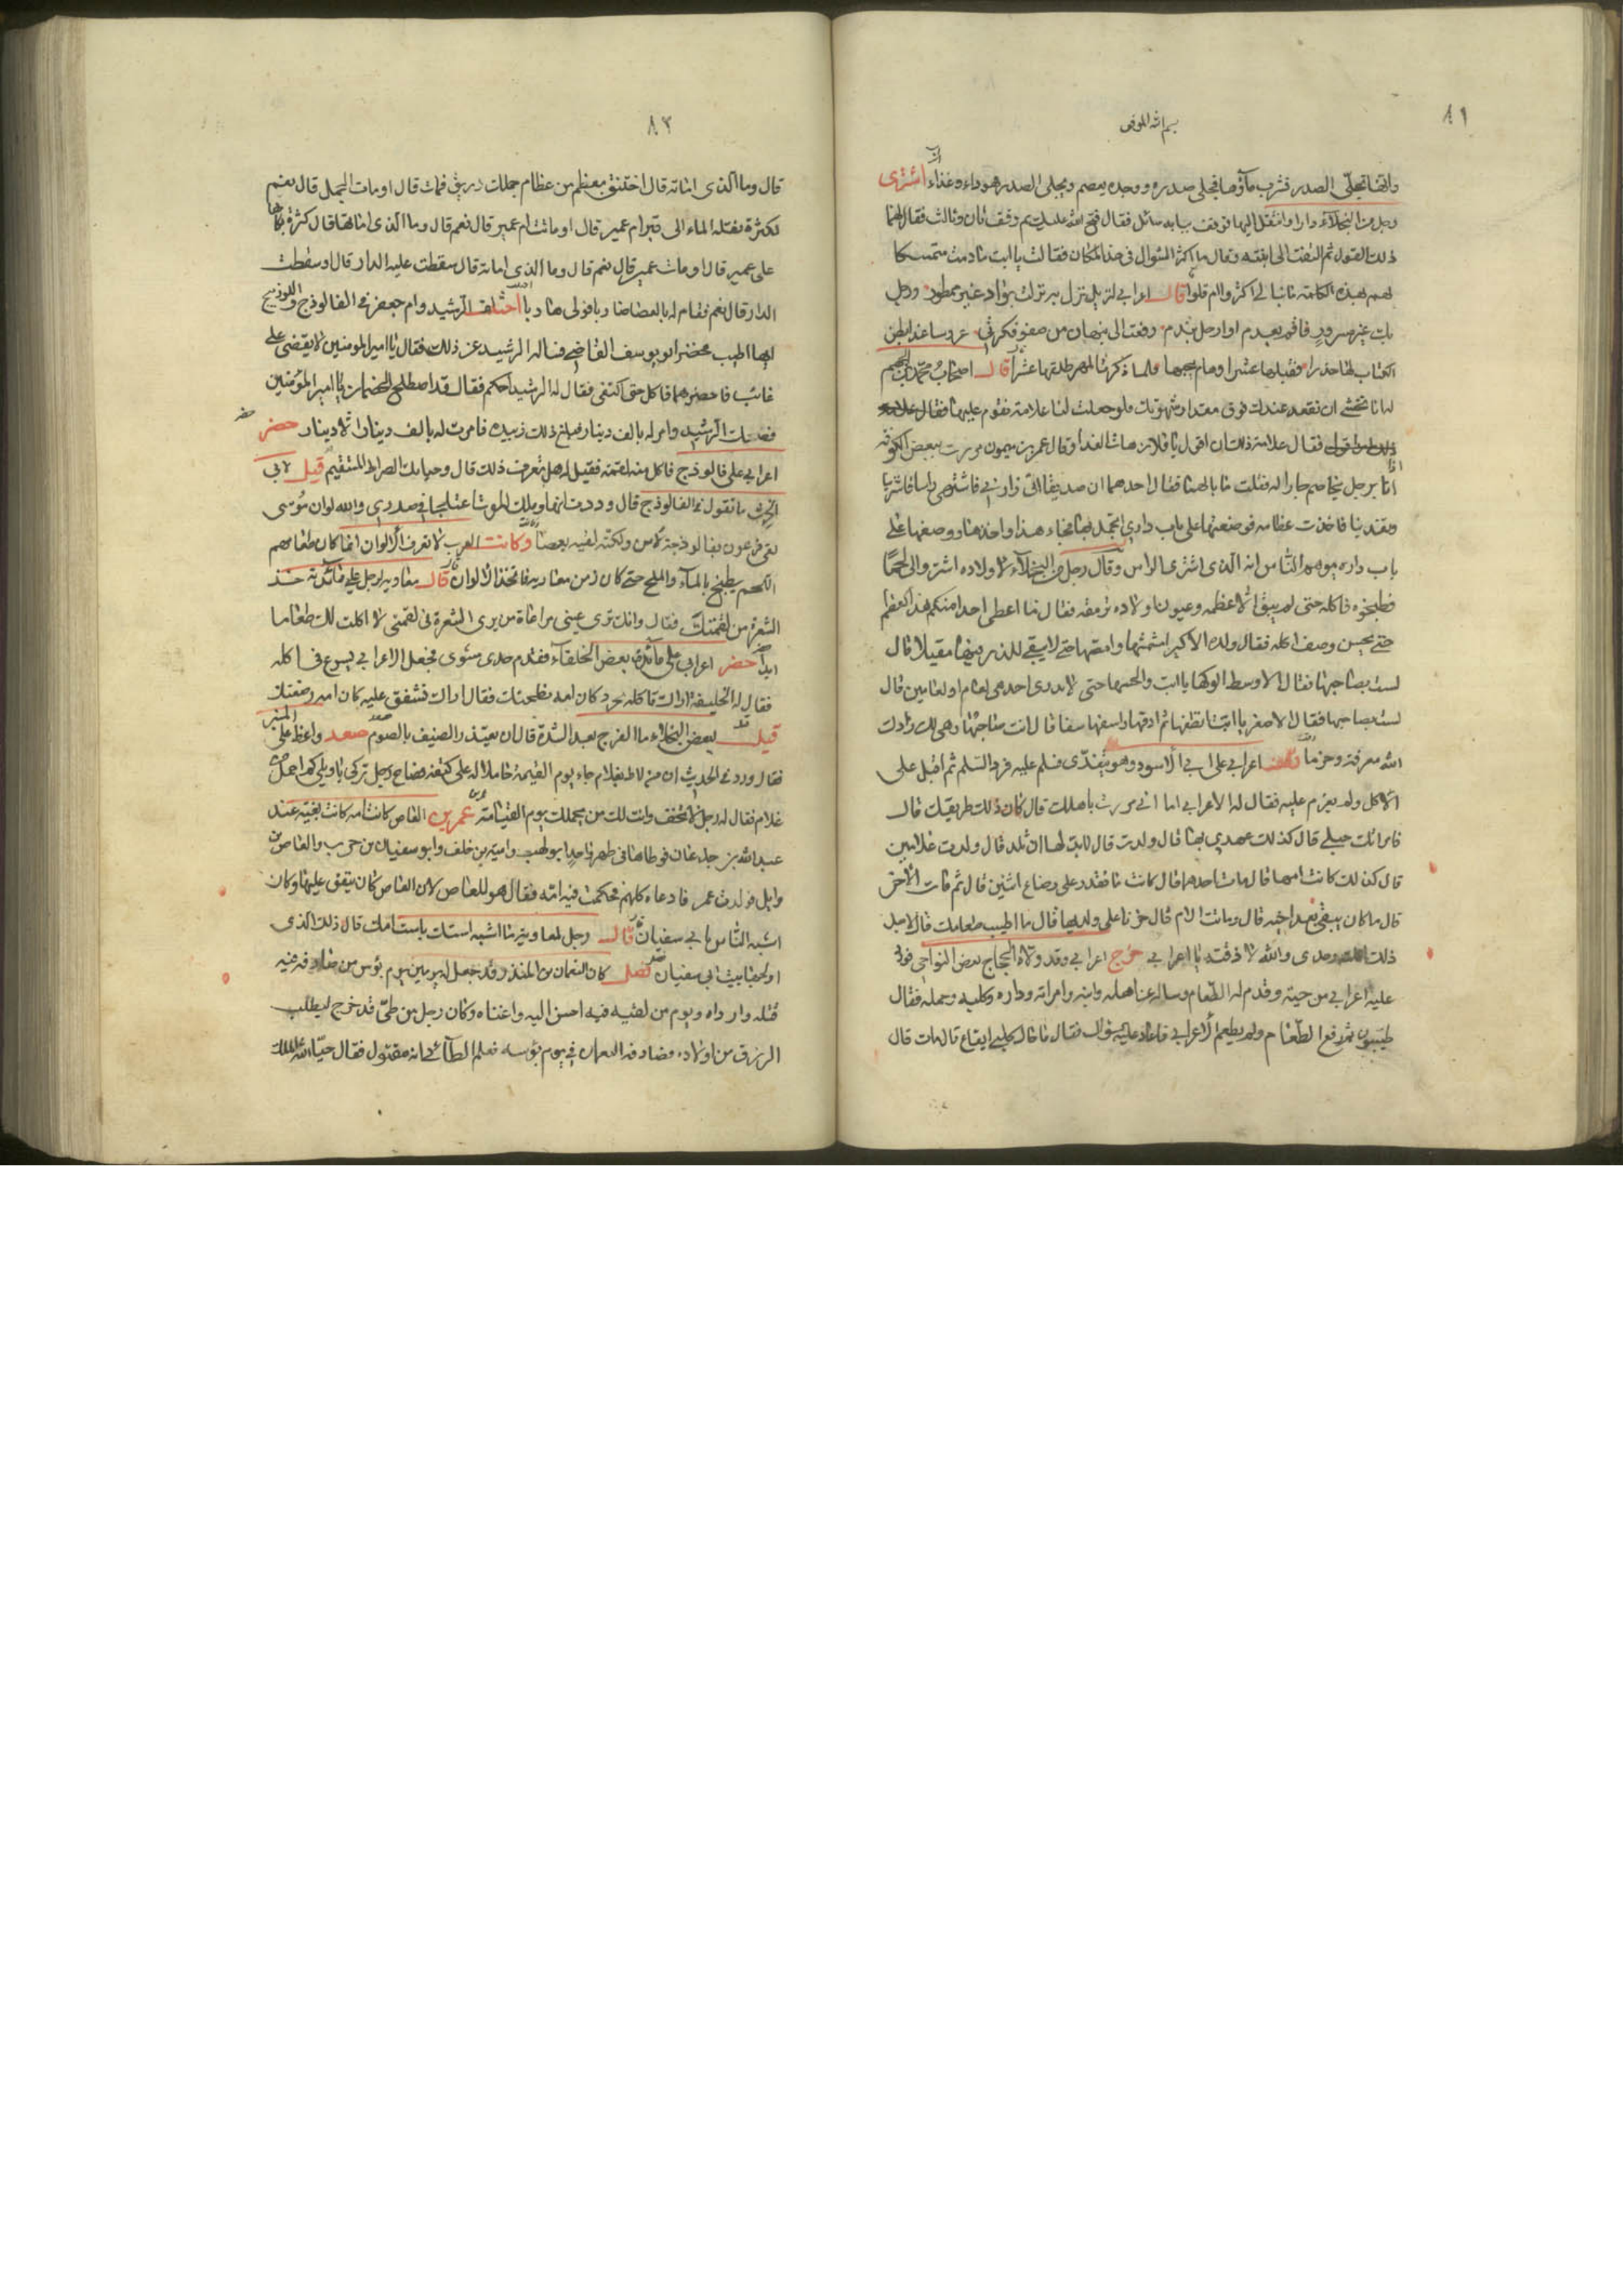 ٨١
بسم الله الموفق
وانها تجلى الصدر فشرب ماؤها فجلى صدره ووجده يعصم ويجلى الصدر هو داء وغذاء اشترى
رجل من البخلاء دارا وانتقل اليها فوقف ببابه سائل فقال فتح الله عليك ثم وقف ثان وثالث فقال لهما
ذلك القول ثم التفت الى ابنته وقال ما اكثر السؤال فى هذا المكان فقالت يا ابت ما دمت متمسكا
لهم بهذه الكلمة ما نبالى اكثروا ام قلوا قال اعرابي لنزيل نزل به نزلت بواد غير ممطور ورجل
بك غير مسرور فاقم بعدم او ارحل بندم
الكتاب لها حذرا اصحاب محمد بن الجهم
له انا نخشى ان نقعد عندك فوق مقدار شهوتك فلو جعلت لنا علامة نقوم عليها فقال علامة
فقال علامة ذلك ان اقول يا غلام هات الغدا وقال عمر بن ميمون مررت ببعض الكوفة
انا برجل يخاصم جارا له فقلت ما بالكما فقال احدهما ان صديقا لى زارنى فاشتهى راسا فاشتريته
وتغدينا فاخذت عظامه فوضعتها على باب داري اتجمل بها فجاء هذا واخذها ووضعها على
باب داره يوهم الناس انه الذى اشترى الراس وقال رجل من البخلاء لاولاده اشتروا لى لحما
فطبخوه فاكله حتى لم يبق الا عظمه وعيون اولاده ترمقه فقال ما اعطى احدا منكم هذا العظم
حتى يحسن وصف اكله فقال ولده الاكبر امشمشها وامصها حتى لا يبقى للذر فيها مقيلا قال
لست بصاحبها فقال الاوسط الوكها يا ابت والحسها حتى لا يدرى احد هى لعام او لعامين قال
لست بصاحبها فقال الاصغر يا ابت امصها ثم ادقها واسفها سفا قال انت صاحبها وهى لك زادك
الله معرفة وحزما وقف اعرابي على ابي الاسود وهو يتغدى فسلم عليه فرد السلم ثم اقبل على
الاكل ولم يعزم عليه فقال له الاعرابي اما انى مررت باهلك قال كان ذلك طريقك قال
فامراتك حبلى قال كذلك عهدي بها قال ولدت قال لا بد لها ان تلد قال ولدت غلامين
قال كذلك كانت امها قال مات احدهما قال كانت ما تقدر على رضاع اثنين قال ثم مات الاخر
قال ما كان يبقى بعد اخيه قال وماتت الام قال حزنا على ولديها قال ما اطيب طعامك قال لاجل
ذلك اكلته وحدى والله لا ذقته يا اعرابي خرج اعرابي وقد ولاه الحجاج بعض النواحى فورد
عليه اعرابي من حيه وقدم له الطعام وساله عن اهله وابنه وامراته وداره وكلبه وجمله فقال
طيبون ثم رفع الطعام ولم يطعم الاعرابي فاعاد عليه سؤال فقال ما حال كلبى ايقاع قال مات قال
٨٢
قال وما الذى اماته قال اختنق بعظم من عظام جملك زريق فمات قال او مات الجمل قال نعم
لكثرة نقله الماء الى قبر ام عمير قال او ماتت ام عمير قال نعم قال وما الذى اماتها قال كثرة بكائها
على عمير قال او مات عمير قال نعم قال وما الذى اماته قال سقطت عليه الدار قال او سقطت
الدار قال نعم فقام له بالعصا ضاربا فولى هاربا اختلف الرشيد وام جعفر فى الفالوذج واللوزينج
ايهما اطيب فحضر ابو يوسف القاضى فساله الرشيد عن ذلك فقال يا امير المومنين لا يقضى على
غائب فاحضرهما فاكل حتى اكتفى فقال له الرشيد احكم فقال قد اصطلح الخصمان يا امير المؤمنين
فضحك الرشيد وامر له بالف دينار فبلغ ذلك زبيدة فامرت له بالف دينار الا دينار حضر
اعرابي على فالوذج فاكل منه لقمة فقيل له هل تعرف ذلك قال وحياتك الصراط المستقيم قيل لابي
الحرث ما تقول فى الفالوذج قال وددت انها وملك الموت اعتلجا في صدري والله لو ان موسى
لقى فرعون بفالوذجة لامن ولكنه لقيه بعصا وكانت العرب لا تعرف الالوان انما كان طعامهم
اللحم يطبخ بالماء والملح حتى كان زمن معاوية فاتخذ الالوان قال معاوية لرجل على مائدته خذ
الشعرة من لقمتك فقال وانك ترى عينى مراعاة من يرى الشعرة فى لقمتى لا اكلت لك طعاما
ابدا حضر اعرابي على مائدة بعض الخلفاء فقدم جدى مشوى فجعل الاعرابي يسرع فى اكله
فقال له الخليفة اراك تاكله بحرد كان امه نطحتك فقال اراك تشفق عليه كان امه ارضعتك
قيل لبعض البخلاء ما الفرج بعد الشدة قال ان يعتذر الضيف بالصوم صعد واعظ على المنبر
فقال ورد فى الحديث ان من لاط بغلام جاء يوم القيمة حاملا له على كتفه فصاح رجل تركى يا ويلى كم احمل
غلام فقال له رجل لا تخف وانت لك من يحملك يوم القيامة عمرو بن العاص كانت امه كانت بغية عند
عبد الله بن جدعان فوطاها فى طهر واحد ابو لهب وامية بن خلف وابو سفيان بن حرب والعاص بن
وايل فولدت عمر فادعاه كلهم فحكمت فيه امه فقال هو للعاص لان العاص كان ينفق عليها وكان
اشبه الناس بابي سفيان قال رجل لمعاوية ما اشبه استك باست امك قال ذلك الذى
اولجها بيت ابى سفيان فصل كان النعمان بن المنذر وقد جعل له يومين يوم بؤس من صادفه فيه
قتله وارداه ويوم من لقيه فيه احسن اليه واغناه وكان رجل من طى قد خرج ليطلب
الرزق من اولاده فصادفه النعمان فى يوم بؤسه فعلم الطائى انه مقتول فقال حيا الله الملك